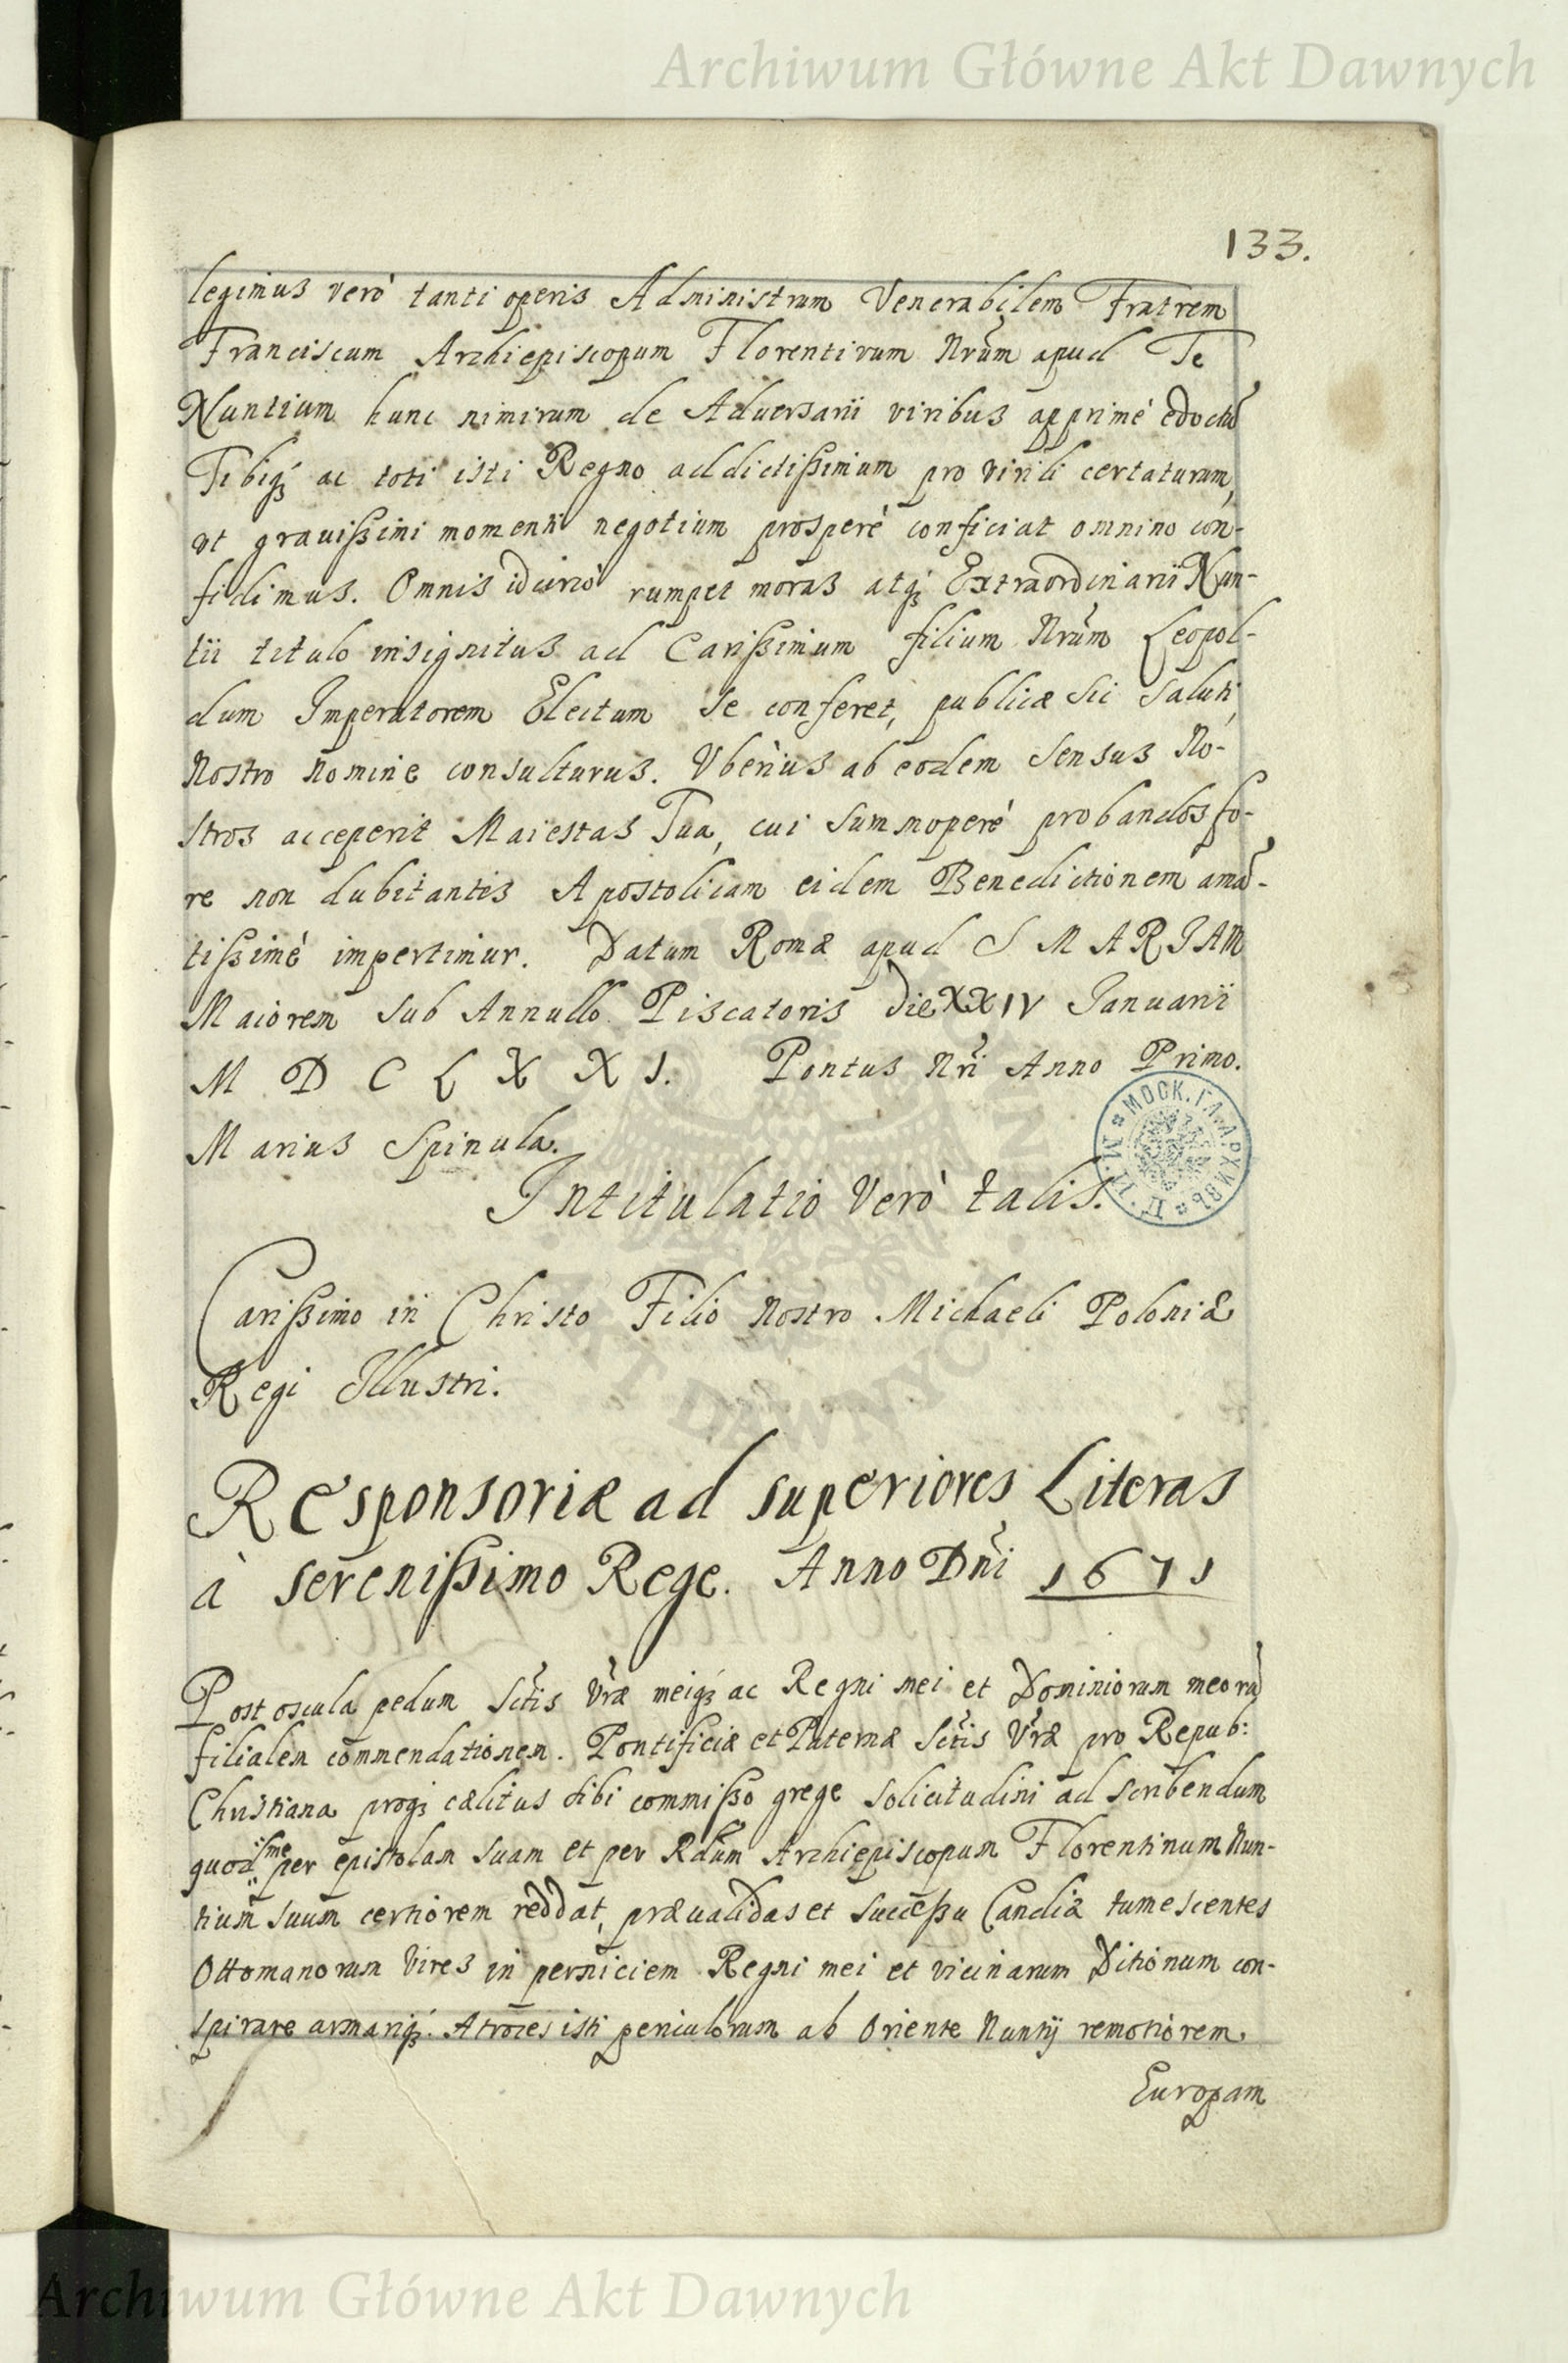 Archiwum Główne Akt Dawnych
133.
legimus verò tanti operis Administrum Venerabilem Fratrem
Franciscum Archiepiscopum Florentinum Nrũm apud Te
Nuntium hunc nimirum de Adversarii viribus apprimè edoctũ
Tibiq́ꝫ ac toti isti Regno addictißimum pro virili certaturum,
ut grauißimi momenti negotium prosperè conficiat omnino con-
fidimus. Omnis idcirco rumpet moras atqꝫ Extraordinarii Nun-
tii titulo insignitus ad Carißimum filium Nrũm Leopol-
dum Imperatorem Electum se conferet, publicæ sic saluti,
Nostro nomine consulturus. Vberius ab eodem sensus No-
stros acceperit Maiestas Tua, cui summoperè probandos fo-
re non dubitantes Apostolicam eidem Benedictionem amã-
tißimè impertimur. Datum Romæ apud S MARIAM
Maiorem sub Annullo Piscatoris die XXIV Ianuarii
M D C L X X I. Pontus Nrĩ Anno Primo.
Marius Spinula.
МОСК. ГЛ. АРХИВЪ
Intitulatio Verò talis.
Carißimo in Christo Filio Nostro Michaeli Poloniæ
Regi Illustri.
Responsoriæ ad superiores Literas
à serenißimo Rege. Anno Dñi 1671
Post oscula pedum Sctĩs Vræ meiq́ꝫ ac Regni mei et Dominiorum meorũ
filialem commendationem. Pontificiæ et Paternæ Sctĩs Vræ pro Repub:
Christiana proqꝫ cælitus sibi commißo grege solicitudini ad scribendum
quod me per epistolam suam et per Rdũm Archiepiscopum Florentinum Nun-
tium suum certiorem reddat, præualidas et succeßu Candiæ tumescentes
Ottomanorum Vires in perniciem Regni mei et vicinarum Ditionum con-
spirare armariq́ꝫ. Atroces isti periculorum ab Oriente Nuntij remotiorem
Europam
Archiwum Główne Akt Dawnych